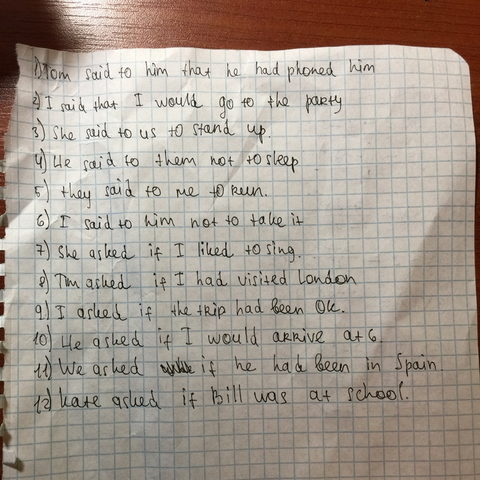 1) Tom said to him that he had phoned him
2) I said that I would go to the party
3) She said to us to stand up.
4) He said to them not to sleep
5) they said to me to run.
6) I said to him not to take it
7) She asked if I liked to sing.
8) Tm asked if I had visited London
9) I asked if the trip had been Ok.
10) He asked if I would arrive at 6.
11) We asked if he had been in Spain
12) Kate asked if Bill was at school.